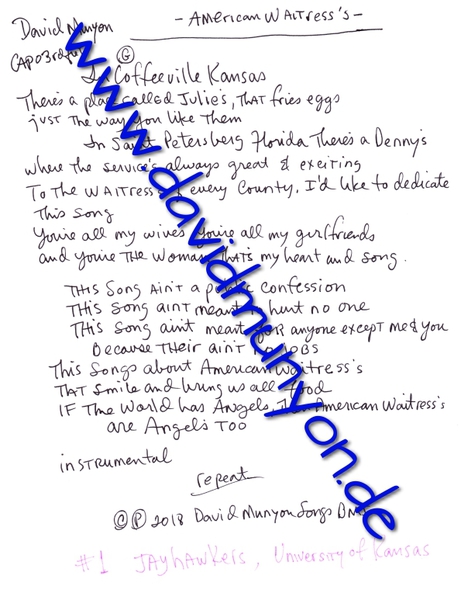 David Munyon
- American Waitress's -
CAPO 3rd
G
In Coffeeville Kansas
There's a place called Julie's, That fries eggs
just The way you like Them
In Saint Petersberg Florida There's a Denny's
where the service's always great & exciting
To the Waitress of every County, I'd like to dedicate
This song
You're all my wives you're all my girlfriends
and you're The Woman That's my heart and song.
This Song Ain't a public confession
This Song aint meant hurt no one
This Song ain't meant for anyone except me & you
Because Their ain't no jobs
This Songs about American Waitress's
That Smile and bring us all food
IF The World has Angels, Then American Waitress's
are Angels Too
instrumental
repeat
© ℗ 2018 David Munyon Songs BMI
#1 Jayhawkers, University of Kansas
www.davidmunyon.de